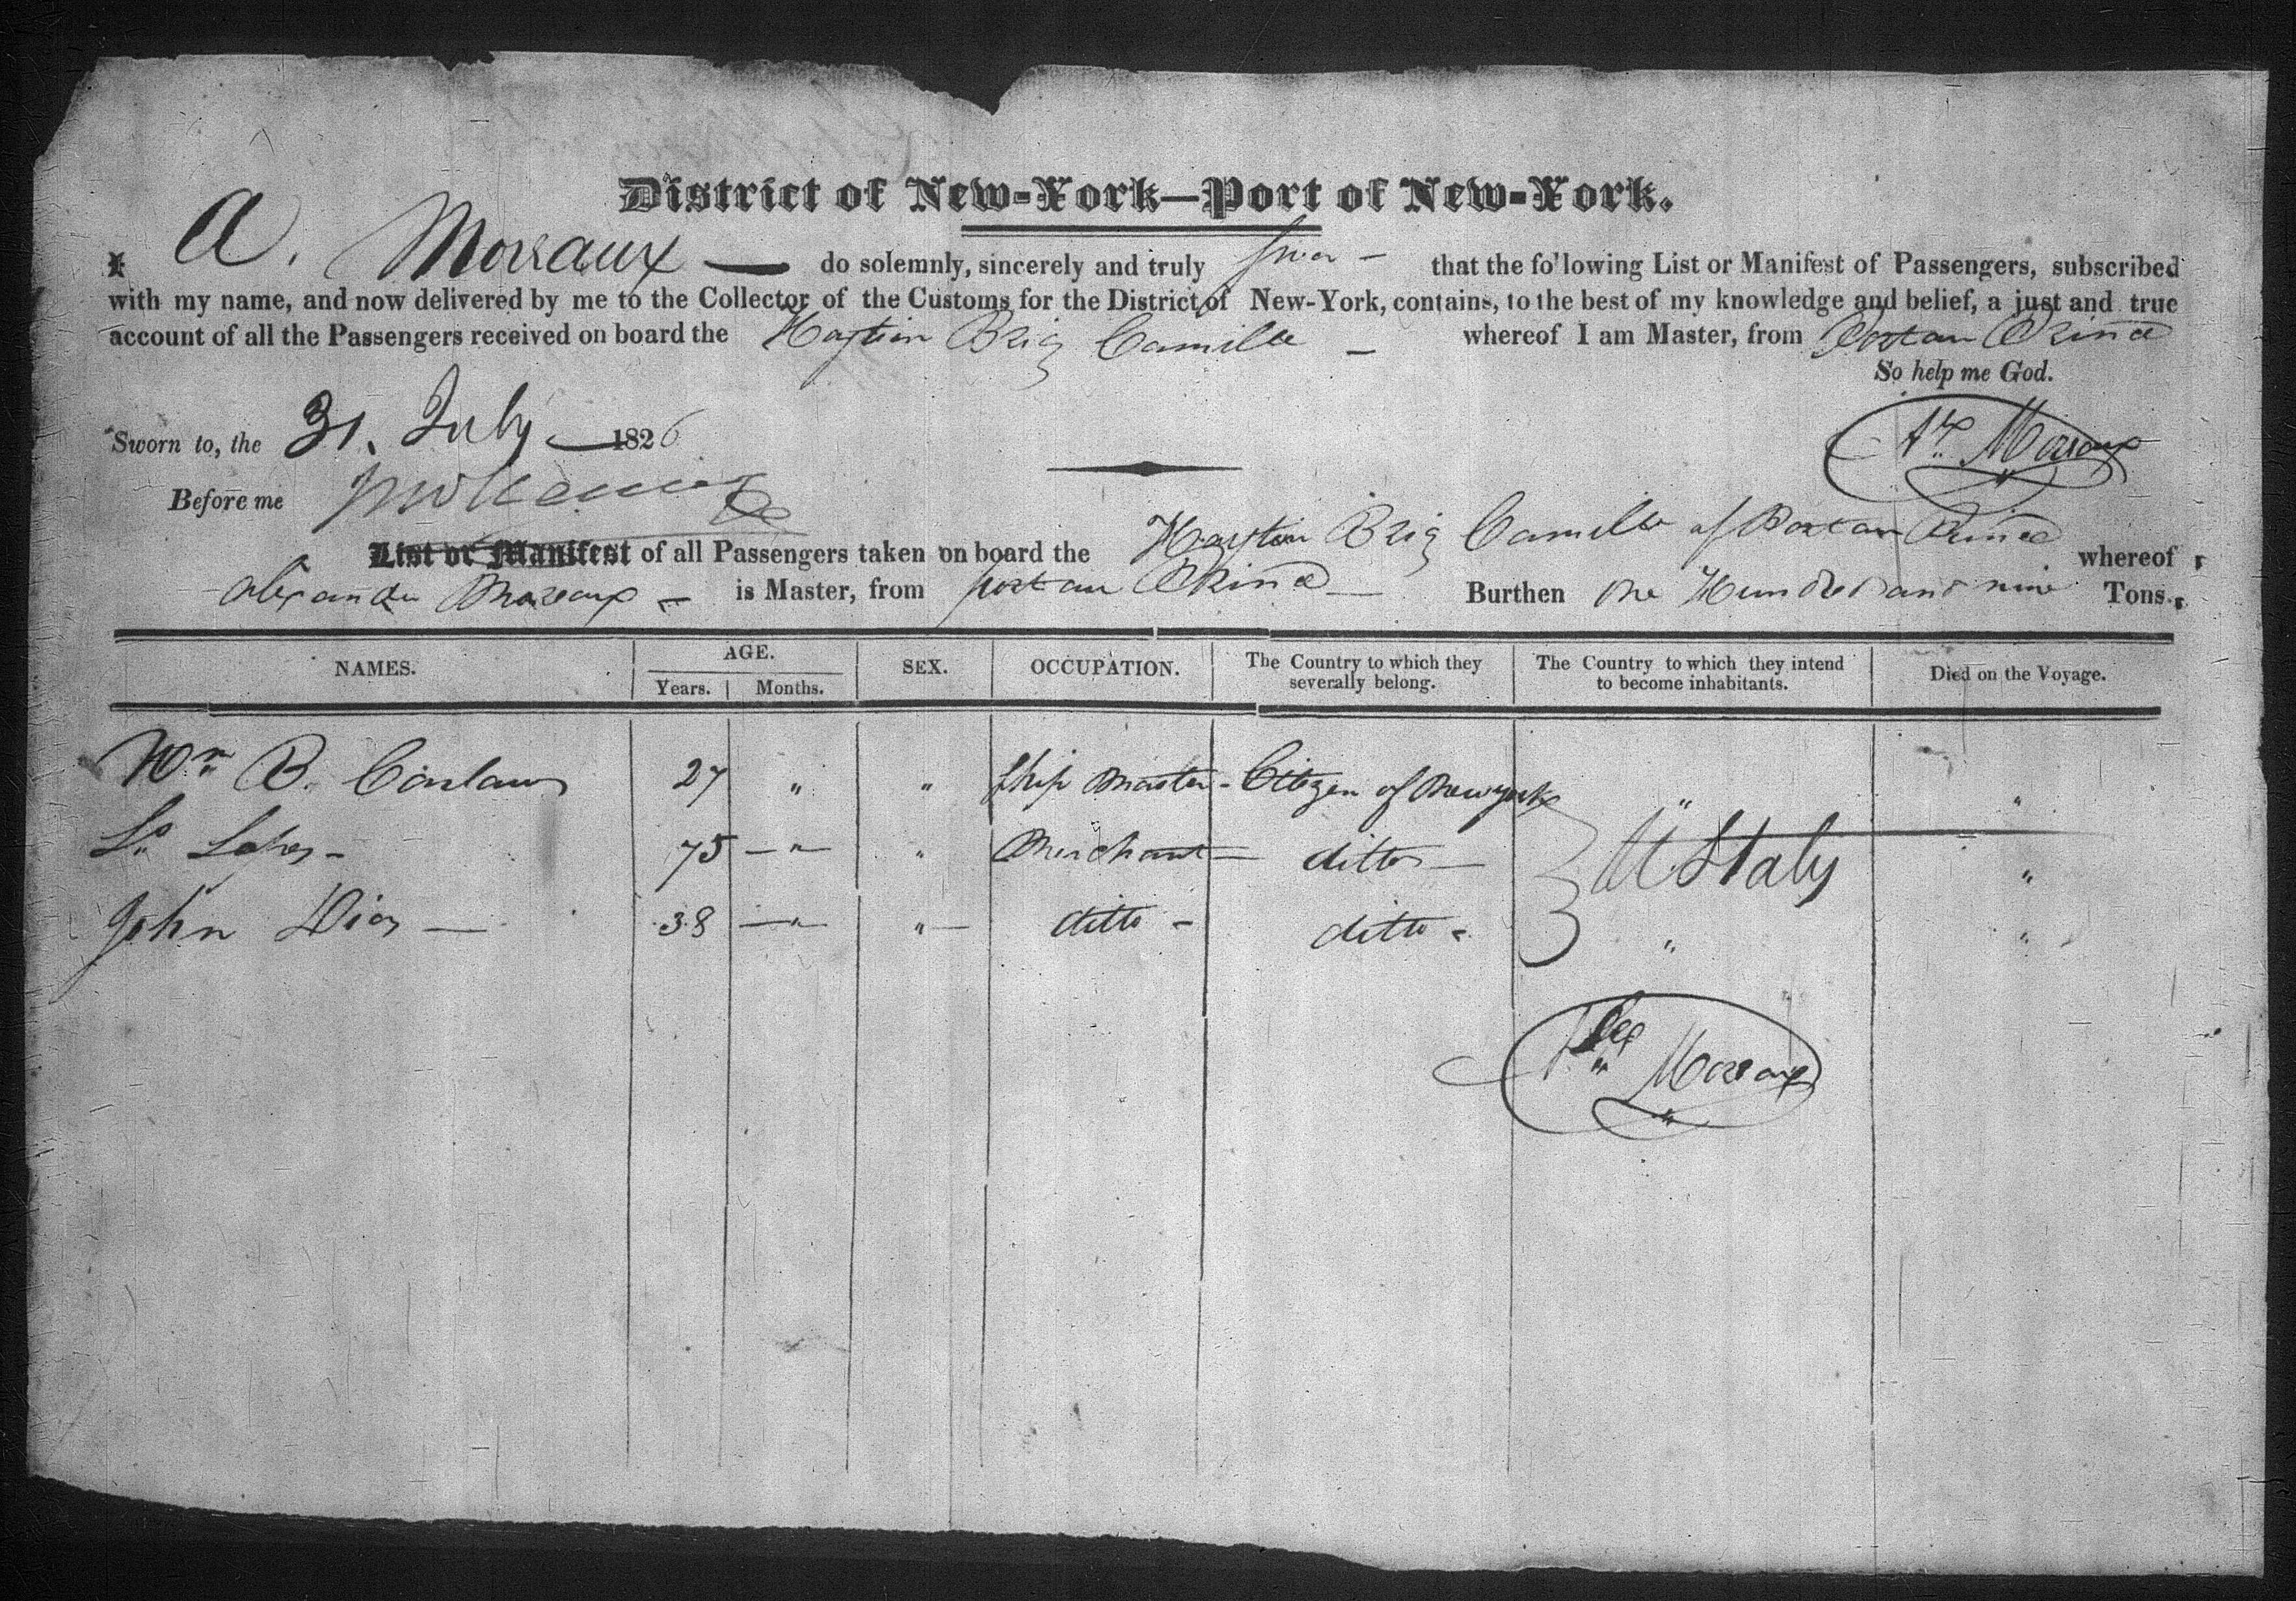 District of New-York—Port of New-York.
I A. Moreaux — do solemnly, sincerely and truly swear – that the following List or Manifest of Passengers, subscribed
with my name, and now delivered by me to the Collector of the Customs for the District of New-York, contains, to the best of my knowledge and belief, a just and true
account of all the Passengers received on board the Haytien Brig Camille – whereof I am Master, from Port au Prince
So help me God.
Sworn to, the 31. July 1826
Ax. Moreaux
Before me
List or Manifest of all Passengers taken on board the Haytien Brig Camille of Port au Prince whereof
Alexander Moreaux – is Master, from Port au Prince — Burthen One Hundred and nine Tons.
NAMES. AGE. SEX. OCCUPATION. The Country to which they severally belong. The Country to which they intend to become inhabitants. Died on the Voyage.
Years. Months.
Wm B. 27 " " Ship Master - Citizen of New york " "
Ls. 75 — " — " Merchant — ditto — U Staly "
John 38 — " — " — ditto - ditto - " "
Moreaux